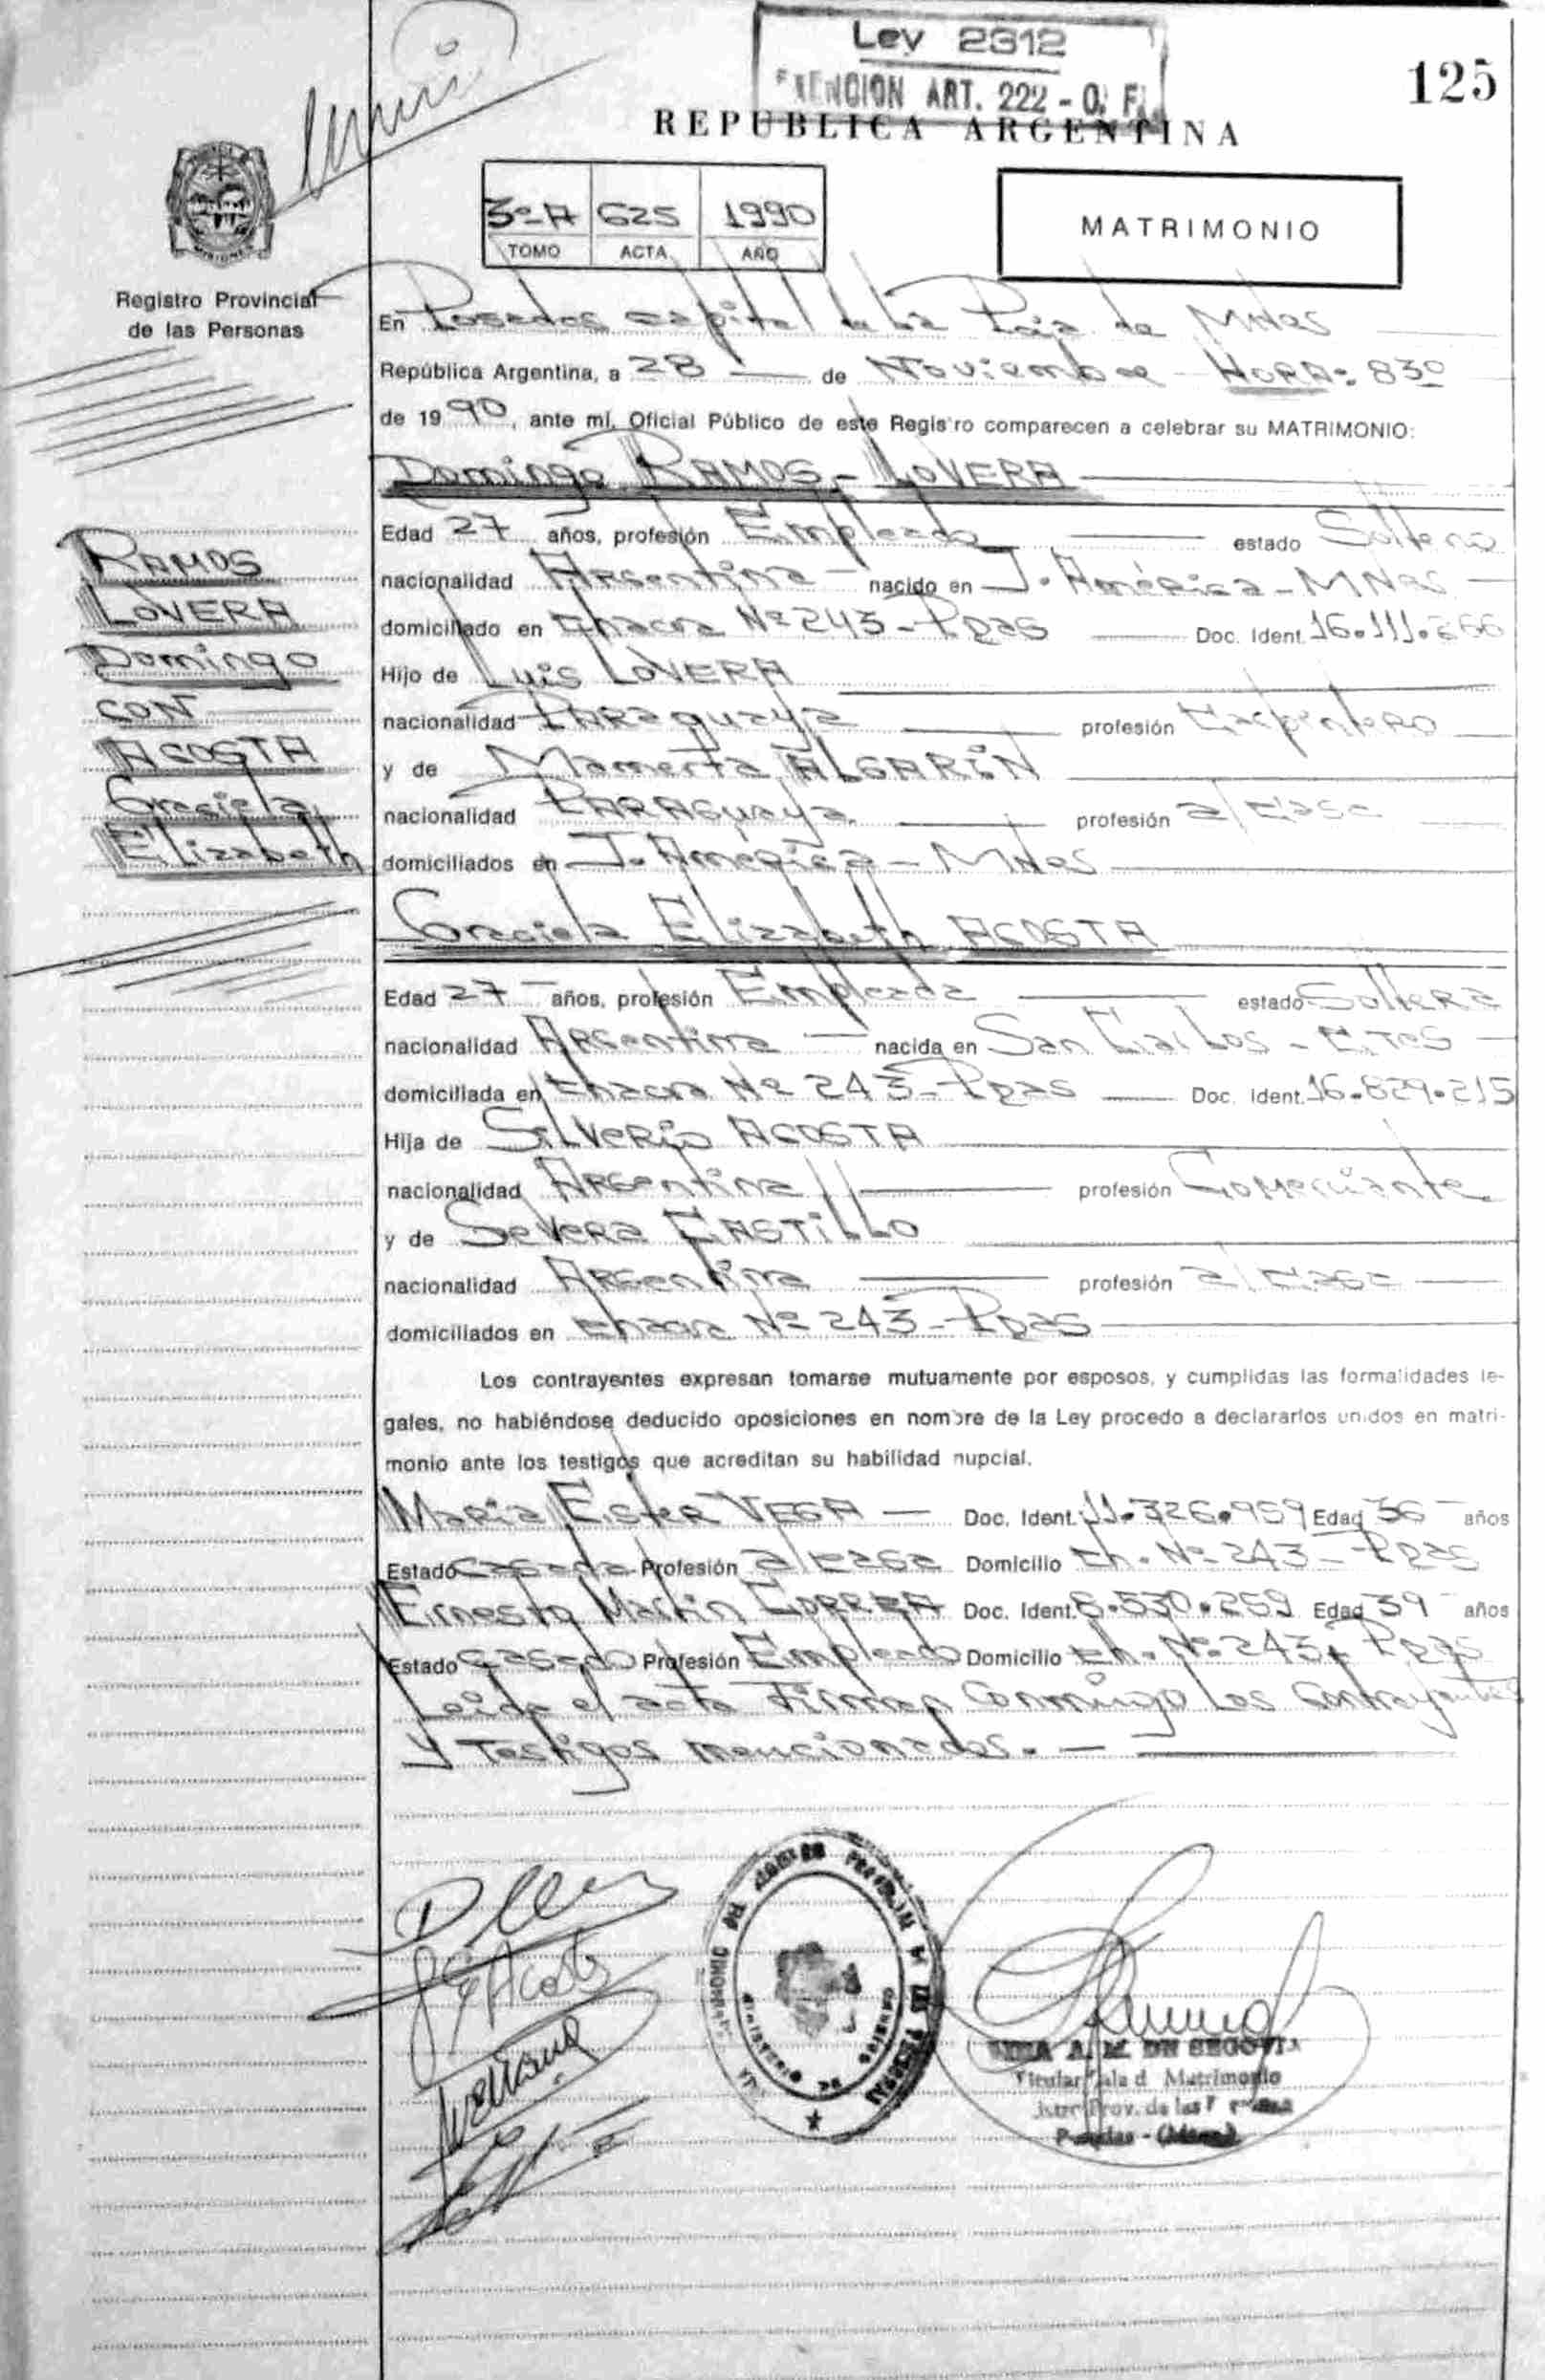 Ley 2312
125
ART. 222 - O. F.
REPUBLICA ARGENTINA
3º A 625 1990
TOMO ACTA AÑO
MATRIMONIO
MISIONES
Registro Provincial
de las Personas
En Posadas capital de la Pcia de Mnes
República Argentina, a 28 de Noviembre HORA: 830
de 1990, ante mí, Oficial Público de este Registro comparecen a celebrar su MATRIMONIO:
Domingo RAMOS - LOVERA
RAMOS
LOVERA
Domingo
CON
ACOSTA
Graciela
Elizabeth
Edad 27 años, profesión Empleado estado Soltero
nacionalidad Argentina nacido en J. América - MNes
domiciliado en Chacra Nº 243 - Pdas Doc. Ident. 16.111.266
Hijo de Luis LOVERA
nacionalidad PARAguaya profesión Carpintero
y de Mamerta ALGARIN
nacionalidad PARAGuaya profesión a/casa
domiciliados en J. América - MNes
Graciela Elizabeth ACOSTA
Edad 27 años, profesión Empleada estado Soltera
nacionalidad Argentina nacida en San Carlos - CTES
domiciliada en Chacra Nº 243 - Pdas Doc. Ident. 16.829.215
Hija de SilVerio ACOSTA
nacionalidad Argentina profesión Comerciante
y de SeVera CASTiLLO
nacionalidad Argentina profesión a/casa
domiciliados en chacra Nº 243 - Pdas
Los contrayentes expresan tomarse mutuamente por esposos, y cumplidas las formalidades le-
gales, no habiéndose deducido oposiciones en nombre de la Ley procedo a declararlos unidos en matri-
monio ante los testigos que acreditan su habilidad nupcial.
Maria Ester VEGA Doc. Ident. 11.326.959 Edad 36 años
Estado Casada Profesión a/casa Domicilio Ch. Nº 243 - Pdas
Ernesto Martin CORREA Doc. Ident. 8.530.259 Edad 39 años
Estado Casado Profesión Empleado Domicilio Ch. Nº 243, Pdas
Leida el acta firman conmigo los contrayentes
y testigos mencionados. -
Acosta
A. M. DE SEGOVIA
Titular Sala d Matrimonio
Prov. de las
Posadas - (Mnes)